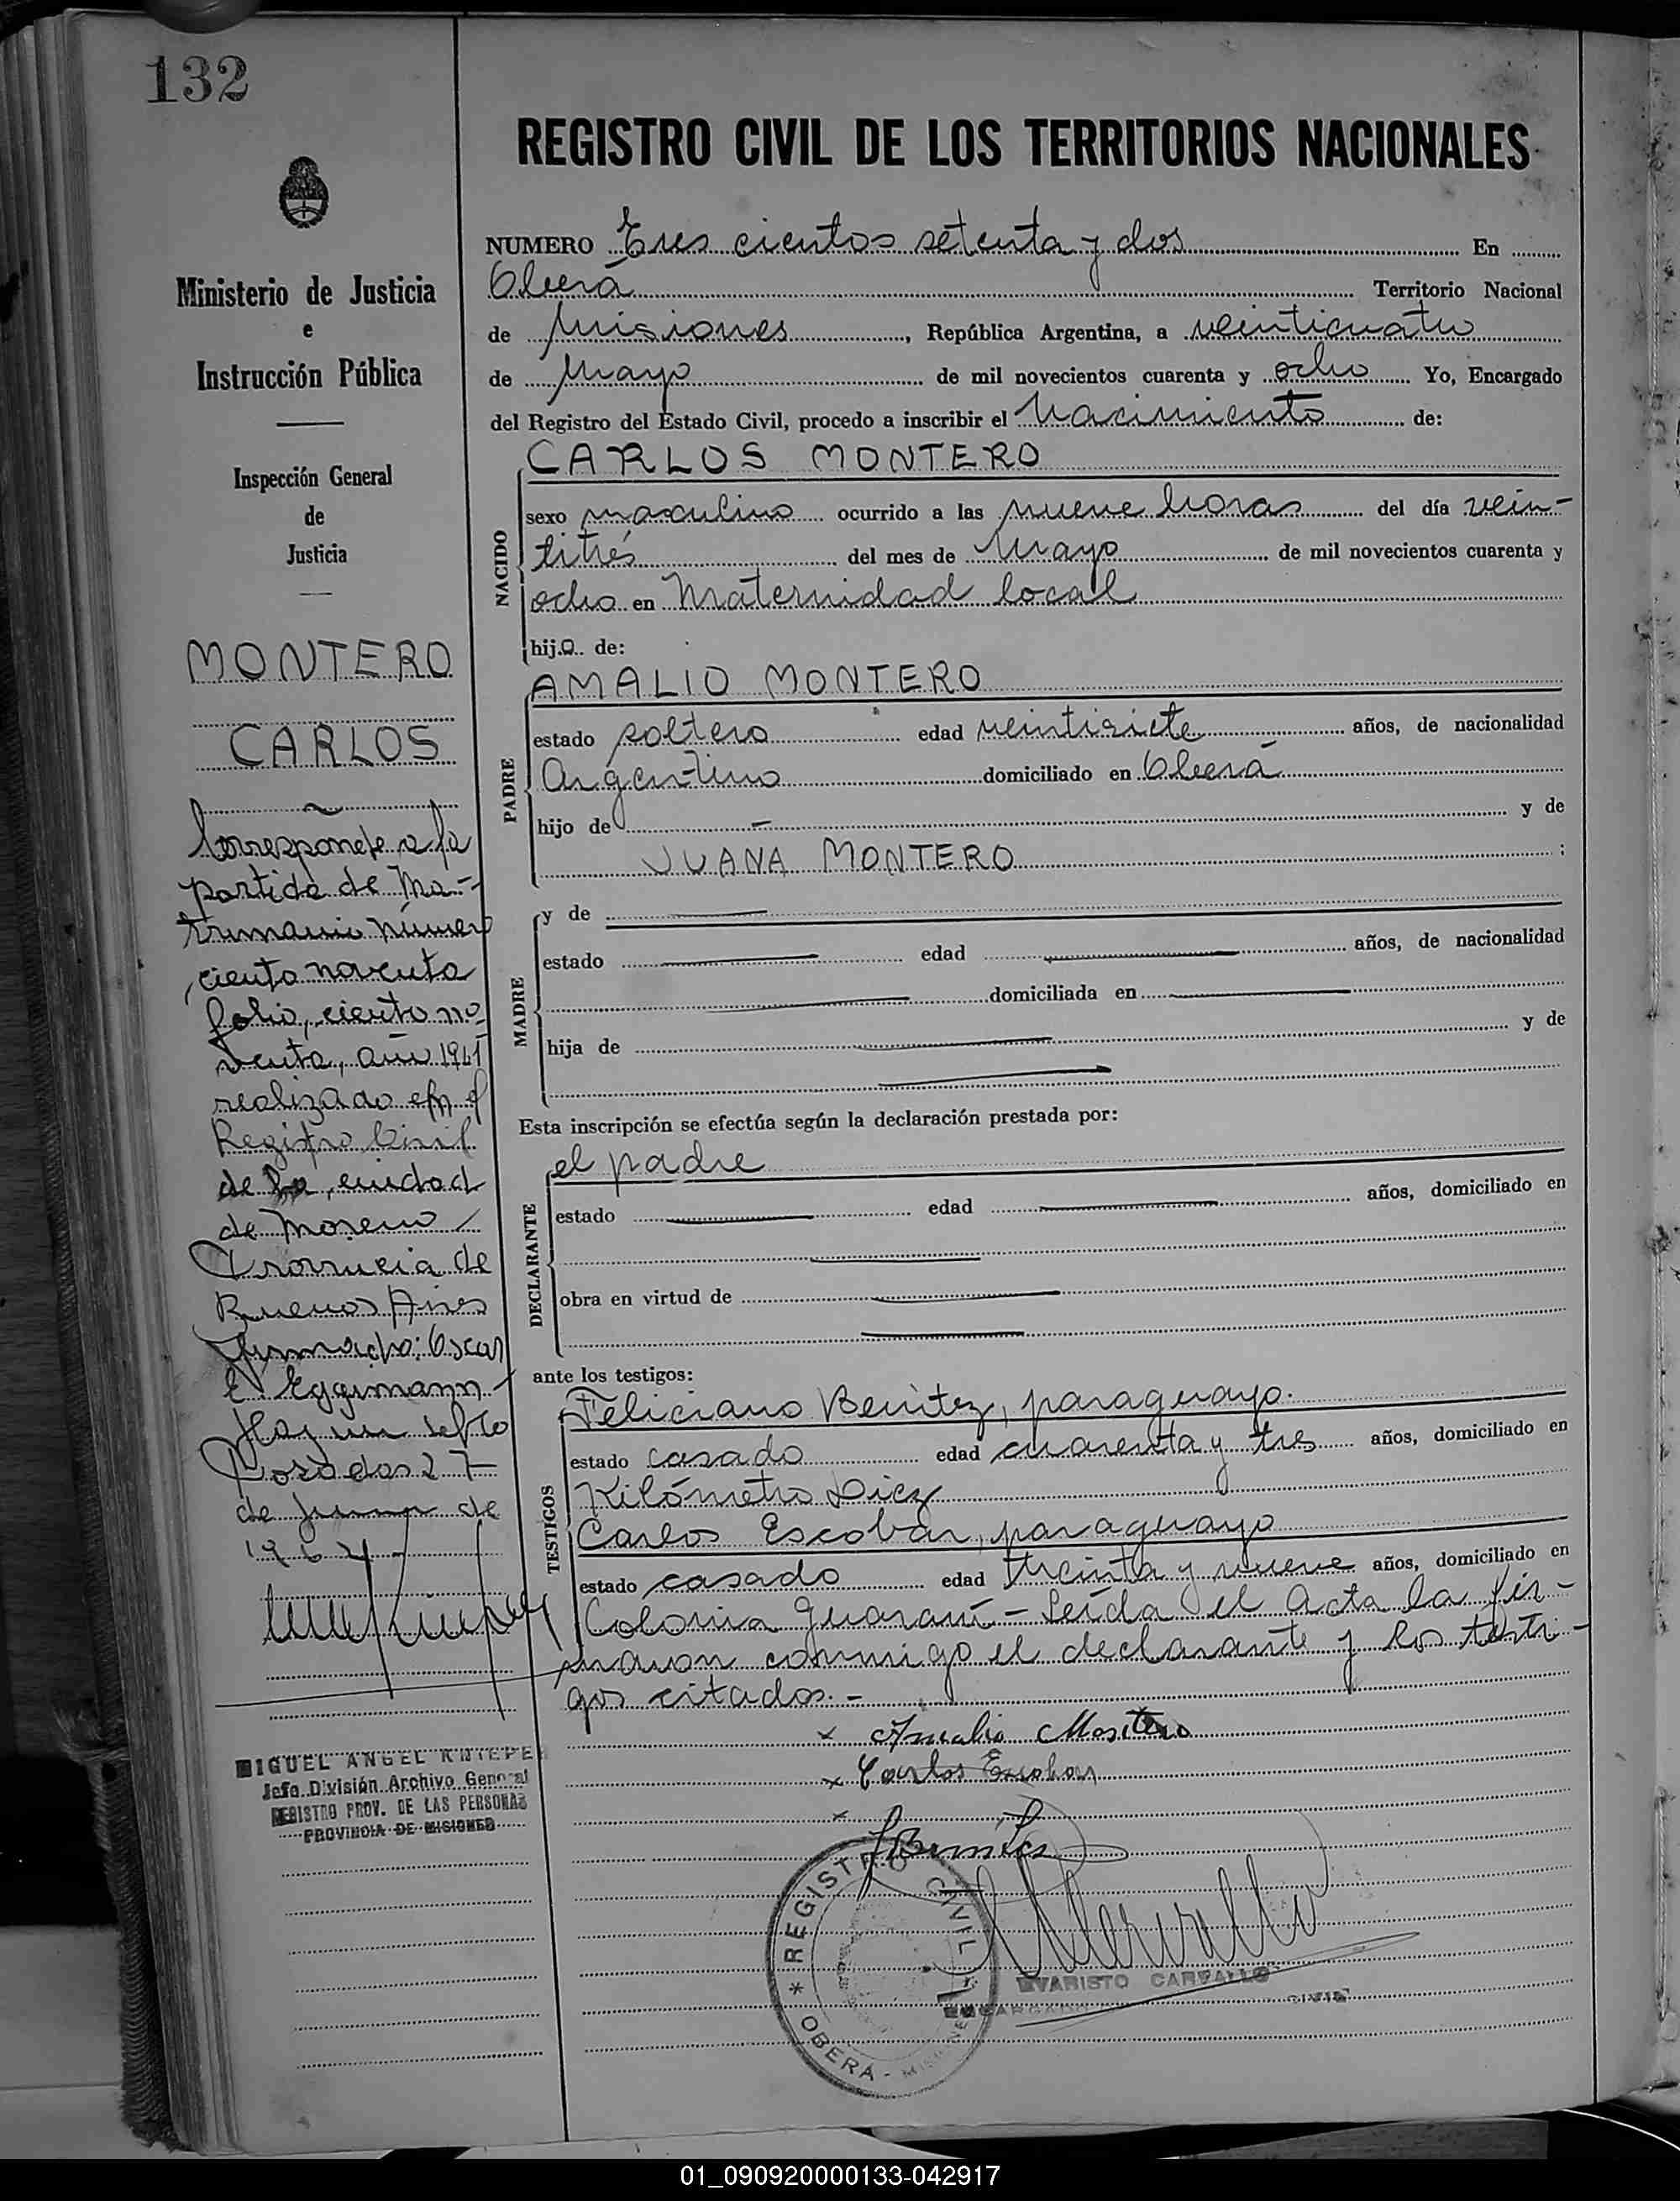 132
Ministerio de Justicia
e
Instrucción Pública
Inspección General
de
Justicia
MONTERO
CARLOS
Corresponde a la
partida de Ma-
trimonio número
ciento noventa
folio, ciento no
venta, año
realizado en el
Registro Civil
de la ciudad
de Moreno
Provincia de
Buenos Aires
Firmado: Oscar
E. Eggimann
Hay un sello
Posadas 27
de de
1964
MIGUEL ANGEL
Jefe División Archivo General
REGISTRO PROV. DE LAS PERSONAS
PROVINCIA DE MISIONES
REGISTRO CIVIL DE LOS TERRITORIOS NACIONALES
NUMERO Tres cientos setenta y dos En
Oberá Territorio Nacional
de Misiones, República Argentina, a veinticuatro
de Mayo de mil novecientos cuarenta y ocho Yo, Encargado
del Registro del Estado Civil, procedo a inscribir el Nacimiento de:
NACIDO
CARLOS MONTERO
sexo masculino ocurrido a las nueve horas del día vein-
titrés del mes de Mayo de mil novecientos cuarenta y
ocho en Maternidad local
hijo de:
PADRE
AMALIO MONTERO
estado soltero edad veintisiete años, de nacionalidad
Argentino domiciliado en Oberá
hijo de — y de
JUANA MONTERO ;
MADRE
y de —
estado — edad — años, de nacionalidad
— domiciliada en —
hija de — y de
—
Esta inscripción se efectúa según la declaración prestada por:
DECLARANTE
el padre
estado — edad — años, domiciliado en
—
obra en virtud de —
—
ante los testigos:
TESTIGOS
Feliciano Benitez, paraguayo.
estado casado edad cuarenta y tres años, domiciliado en
Kilómetro Diez
Carlos Escobar, paraguayo
estado casado edad treinta y nueve años, domiciliado en
Colonia Guaraní - Leída el Acta la fir-
maron conmigo el declarante y los testi-
gos citados. -
x Amalio Montero
x Carlos Escobar
x F Benites
* REGISTRO CIVIL * OBERA - MISIONES
EVARISTO CARVALLO
ENCARGADO CIVIL
01_090920000133-042917